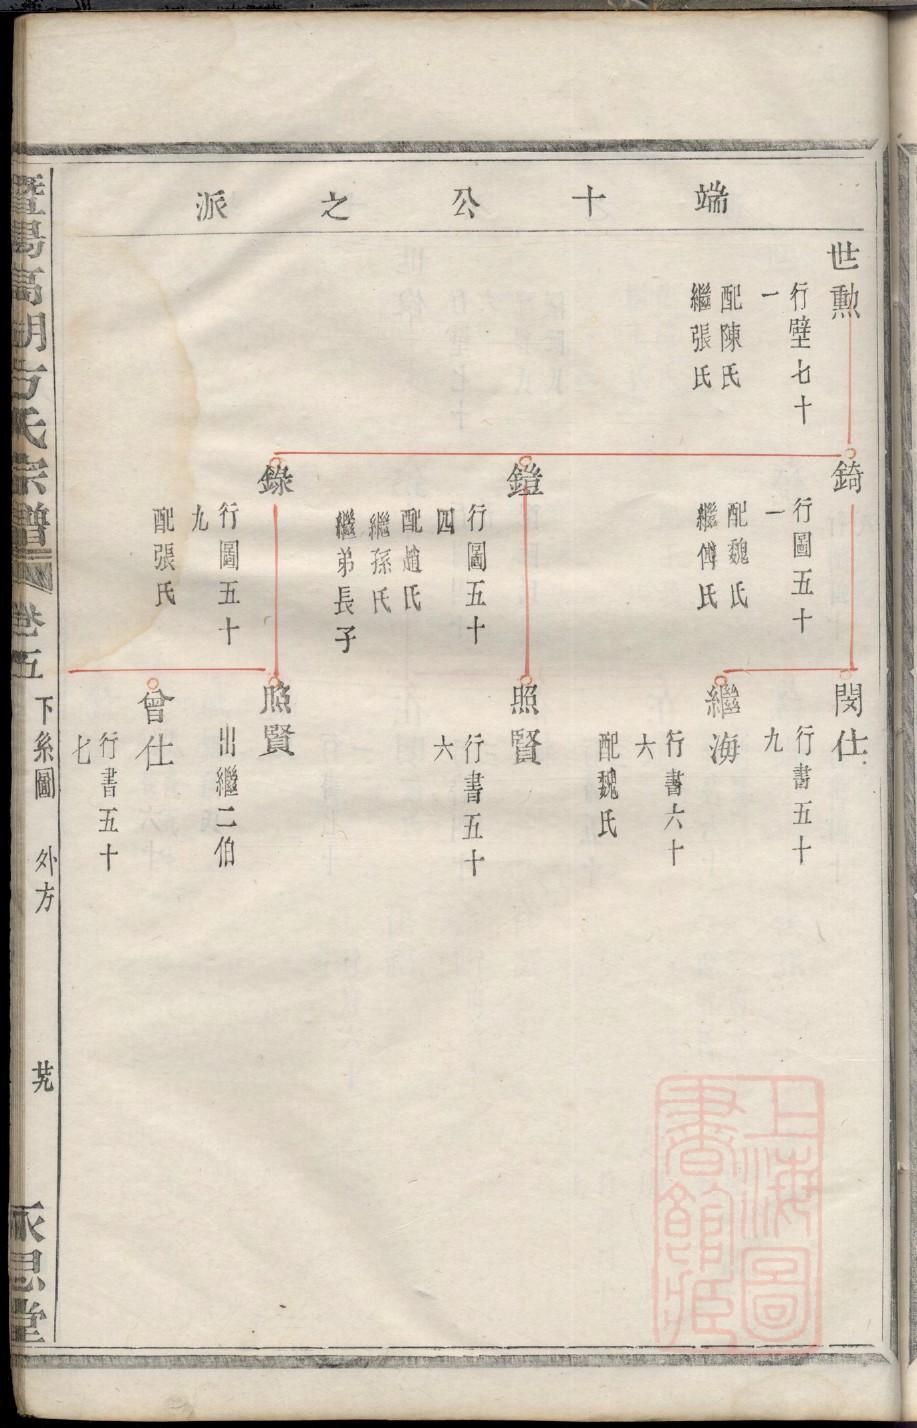 端十公之派
世勳
行壁七十
一
配陳氏
繼張氏
錡
行圖五十
一
配魏氏
繼傅氏
鎧
行圖五十
四
配趙氏
繼孫氏
繼弟長子
錄
行圖五十
九
配張氏
閔仕
行書五十
九
繼海
行書六十
六
配魏氏
照賢
行書五十
六
照賢
出繼二伯
曾仕
行書五十
七
暨昜高湖方氏宗譜
卷五
下系圖
外方
永思堂
上海圖
書館藏